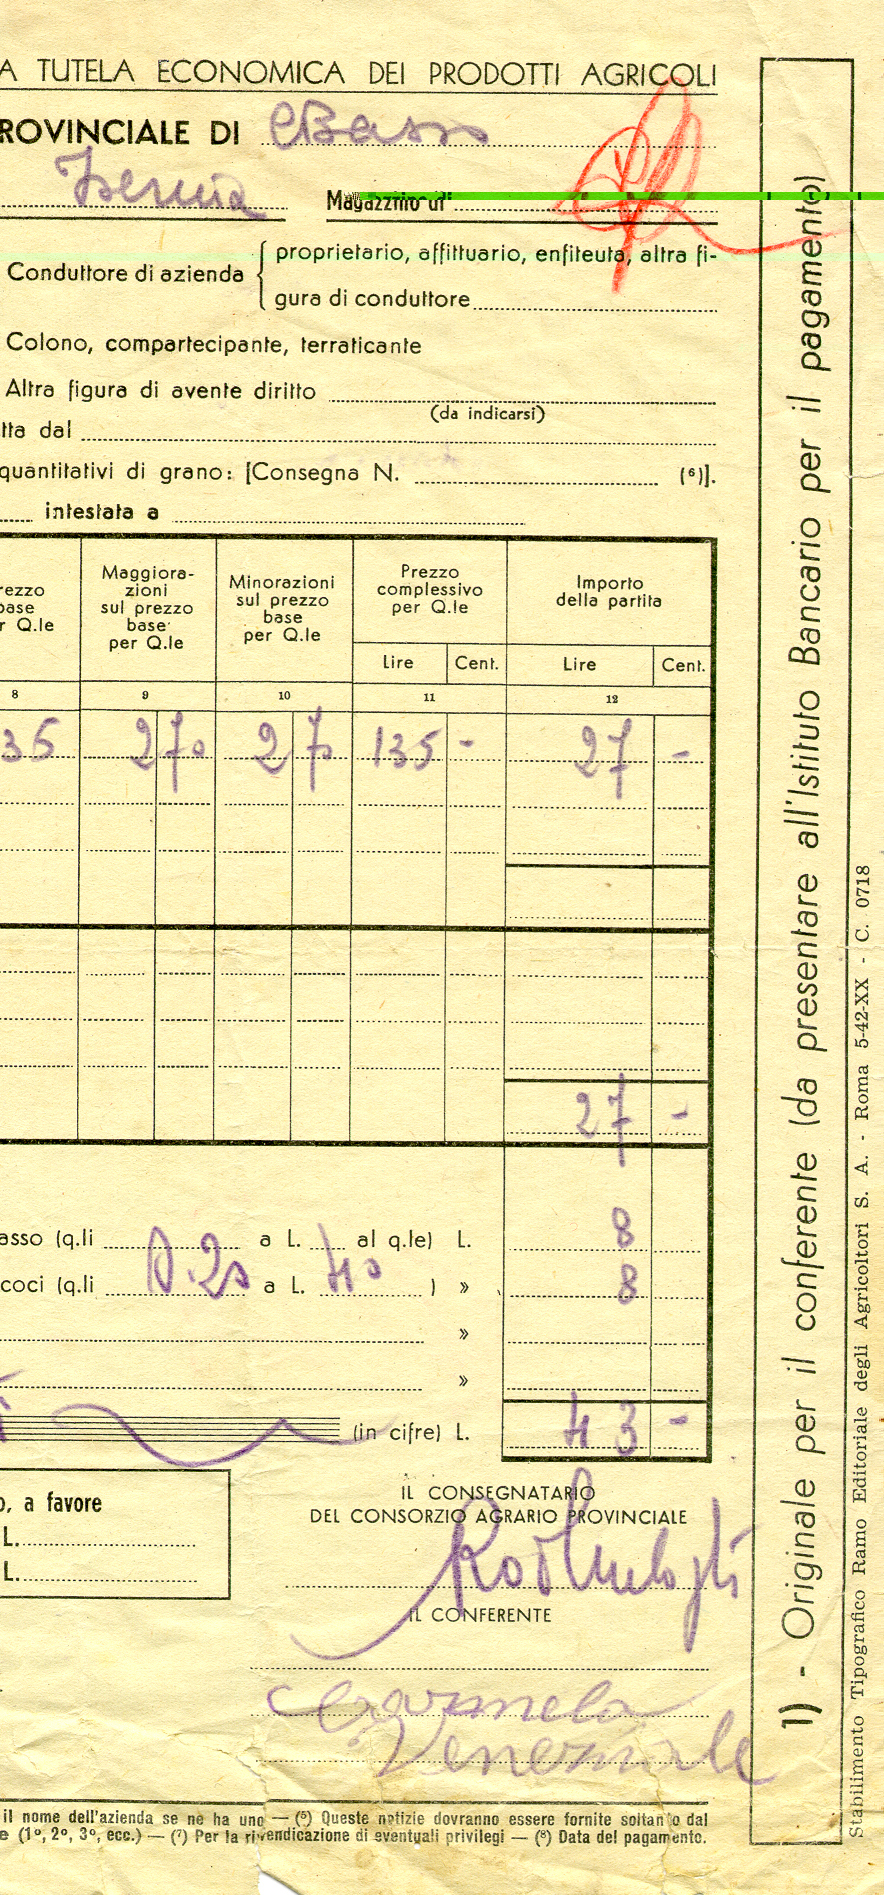 A TUTELA ECONOMICA DEI PRODOTTI AGRICOLI
ROVINCIALE DI CBasso
Isernia Magazzino di
Conduttore di azienda { proprietario, affittuario, enfiteuta, altra fi-
gura di conduttore
Colono, compartecipante, terraticante
Altra figura di avente diritto
(da indicarsi)
tta dal
quantitativi di grano: [Consegna N. (⁶)].
intestata a
rezzo base r Q.le
Maggiora-zioni sul prezzo base per Q.le
Minorazioni sul prezzo base per Q.le
Prezzo complessivo per Q.le
Importo della partita
Lire Cent. Lire Cent.
8 9 10 11 12
35 2 70 2 70 135 - 27 -
27 -
asso (q.li a L. al q.le) L. 8
coci (q.li 0.20 a L. 40 ) » 8
»
»
(in cifre) L. 43 -
o, a favore
L.
L.
IL CONSEGNATARIO
DEL CONSORZIO AGRARIO PROVINCIALE
IL CONFERENTE
Carmela
Veneziale
il nome dell'azienda se ne ha uno — (⁵) Queste notizie dovranno essere fornite soltanto dal
e (1º, 2º, 3º, ecc.) — (⁷) Per la rivendicazione di eventuali privilegi — (⁸) Data del pagamento.
1) - Originale per il conferente (da presentare all'Istituto Bancario per il pagamento)
Stabilimento Tipografico Ramo Editoriale degli Agricoltori S. A. - Roma 5-42-XX - C. 0718